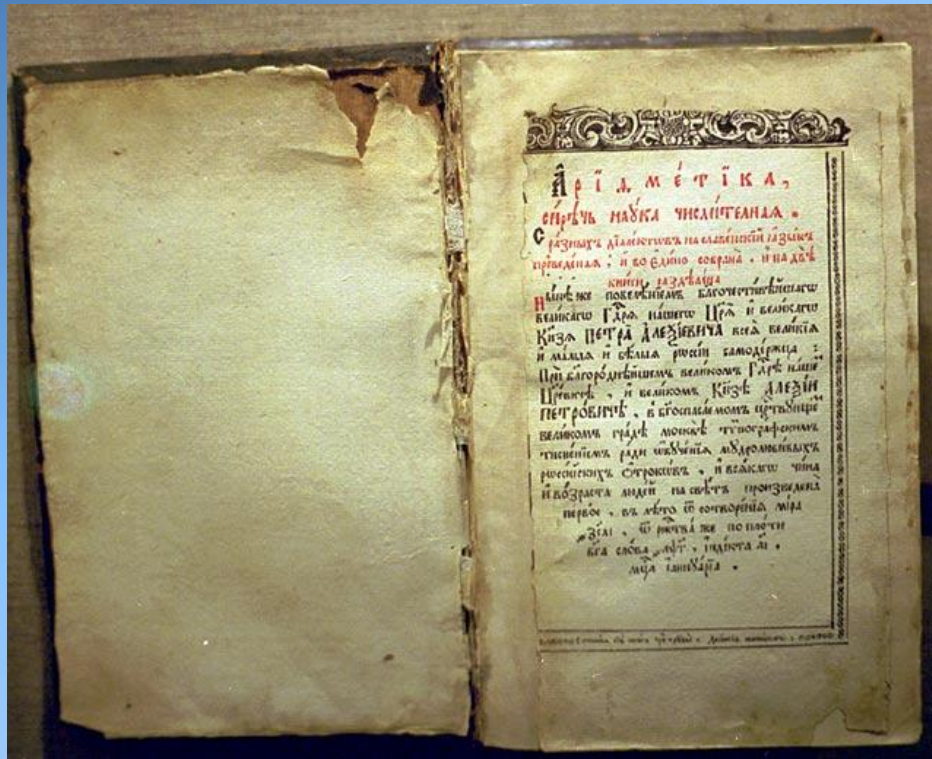 Арїѳме́тїка,
си́рѣчь наꙋ́ка числи́телнаѧ.
С ра́зныхъ дїале́ктѡвъ на славе́нскїй ꙗ҆зы́къ
преведе́наѧ, и҆ во є҆ди́но собрана̀, и҆ на двѣ̀
кни̑ги раздѣле́на
Ны́нѣ же повелѣ́нїемъ благочести́вѣйшагѡ
вели́кагѡ Гдⷭ҇рѧ на́шегѡ Цр҃ѧ̀ и҆ вели́кагѡ
Кн҃зѧ ПЕТРА̀ А҆ЛЕѮІ́ЕВИЧА всеѧ̀ вели́кїѧ
и҆ ма́лыѧ и҆ бѣ́лыѧ рѡссі́и самоде́ржца:
Прѝ бл҃горо́днѣйшемъ вели́комъ Гдⷭ҇рѣ̀ на́шемъ
Цр҃е́вичѣ, и҆ вели́комъ Кн҃зѣ А҆ЛЕѮІ́И
ПЕТРО́ВИЧѢ, в бг҃оспаса́емомъ ца́рствꙋющемъ
вели́комъ гра́дѣ москвѣ̀ тѷпогра́фскимъ
тисне́нїемъ ра́ди ѡ҆бꙋче́нїѧ мꙋдролюби́выхъ
рѡссі́йскихъ ѻ҆́трокѡвъ, и҆ всѧ́кагѡ чи́на
и҆ во́зраста люде́й на свѣ́тъ произведена̀
пе́рвое, въ лѣ́то ѿ сотворе́нїѧ мі́ра
҂зс҃аі, ѿ ржⷭ҇тва̀ же по пло́ти
бг҃а сло́ва ҂аѱ҃г, і҆ндї́кта а҃і.
мцⷭ҇а і҆аннꙋа́рїа.